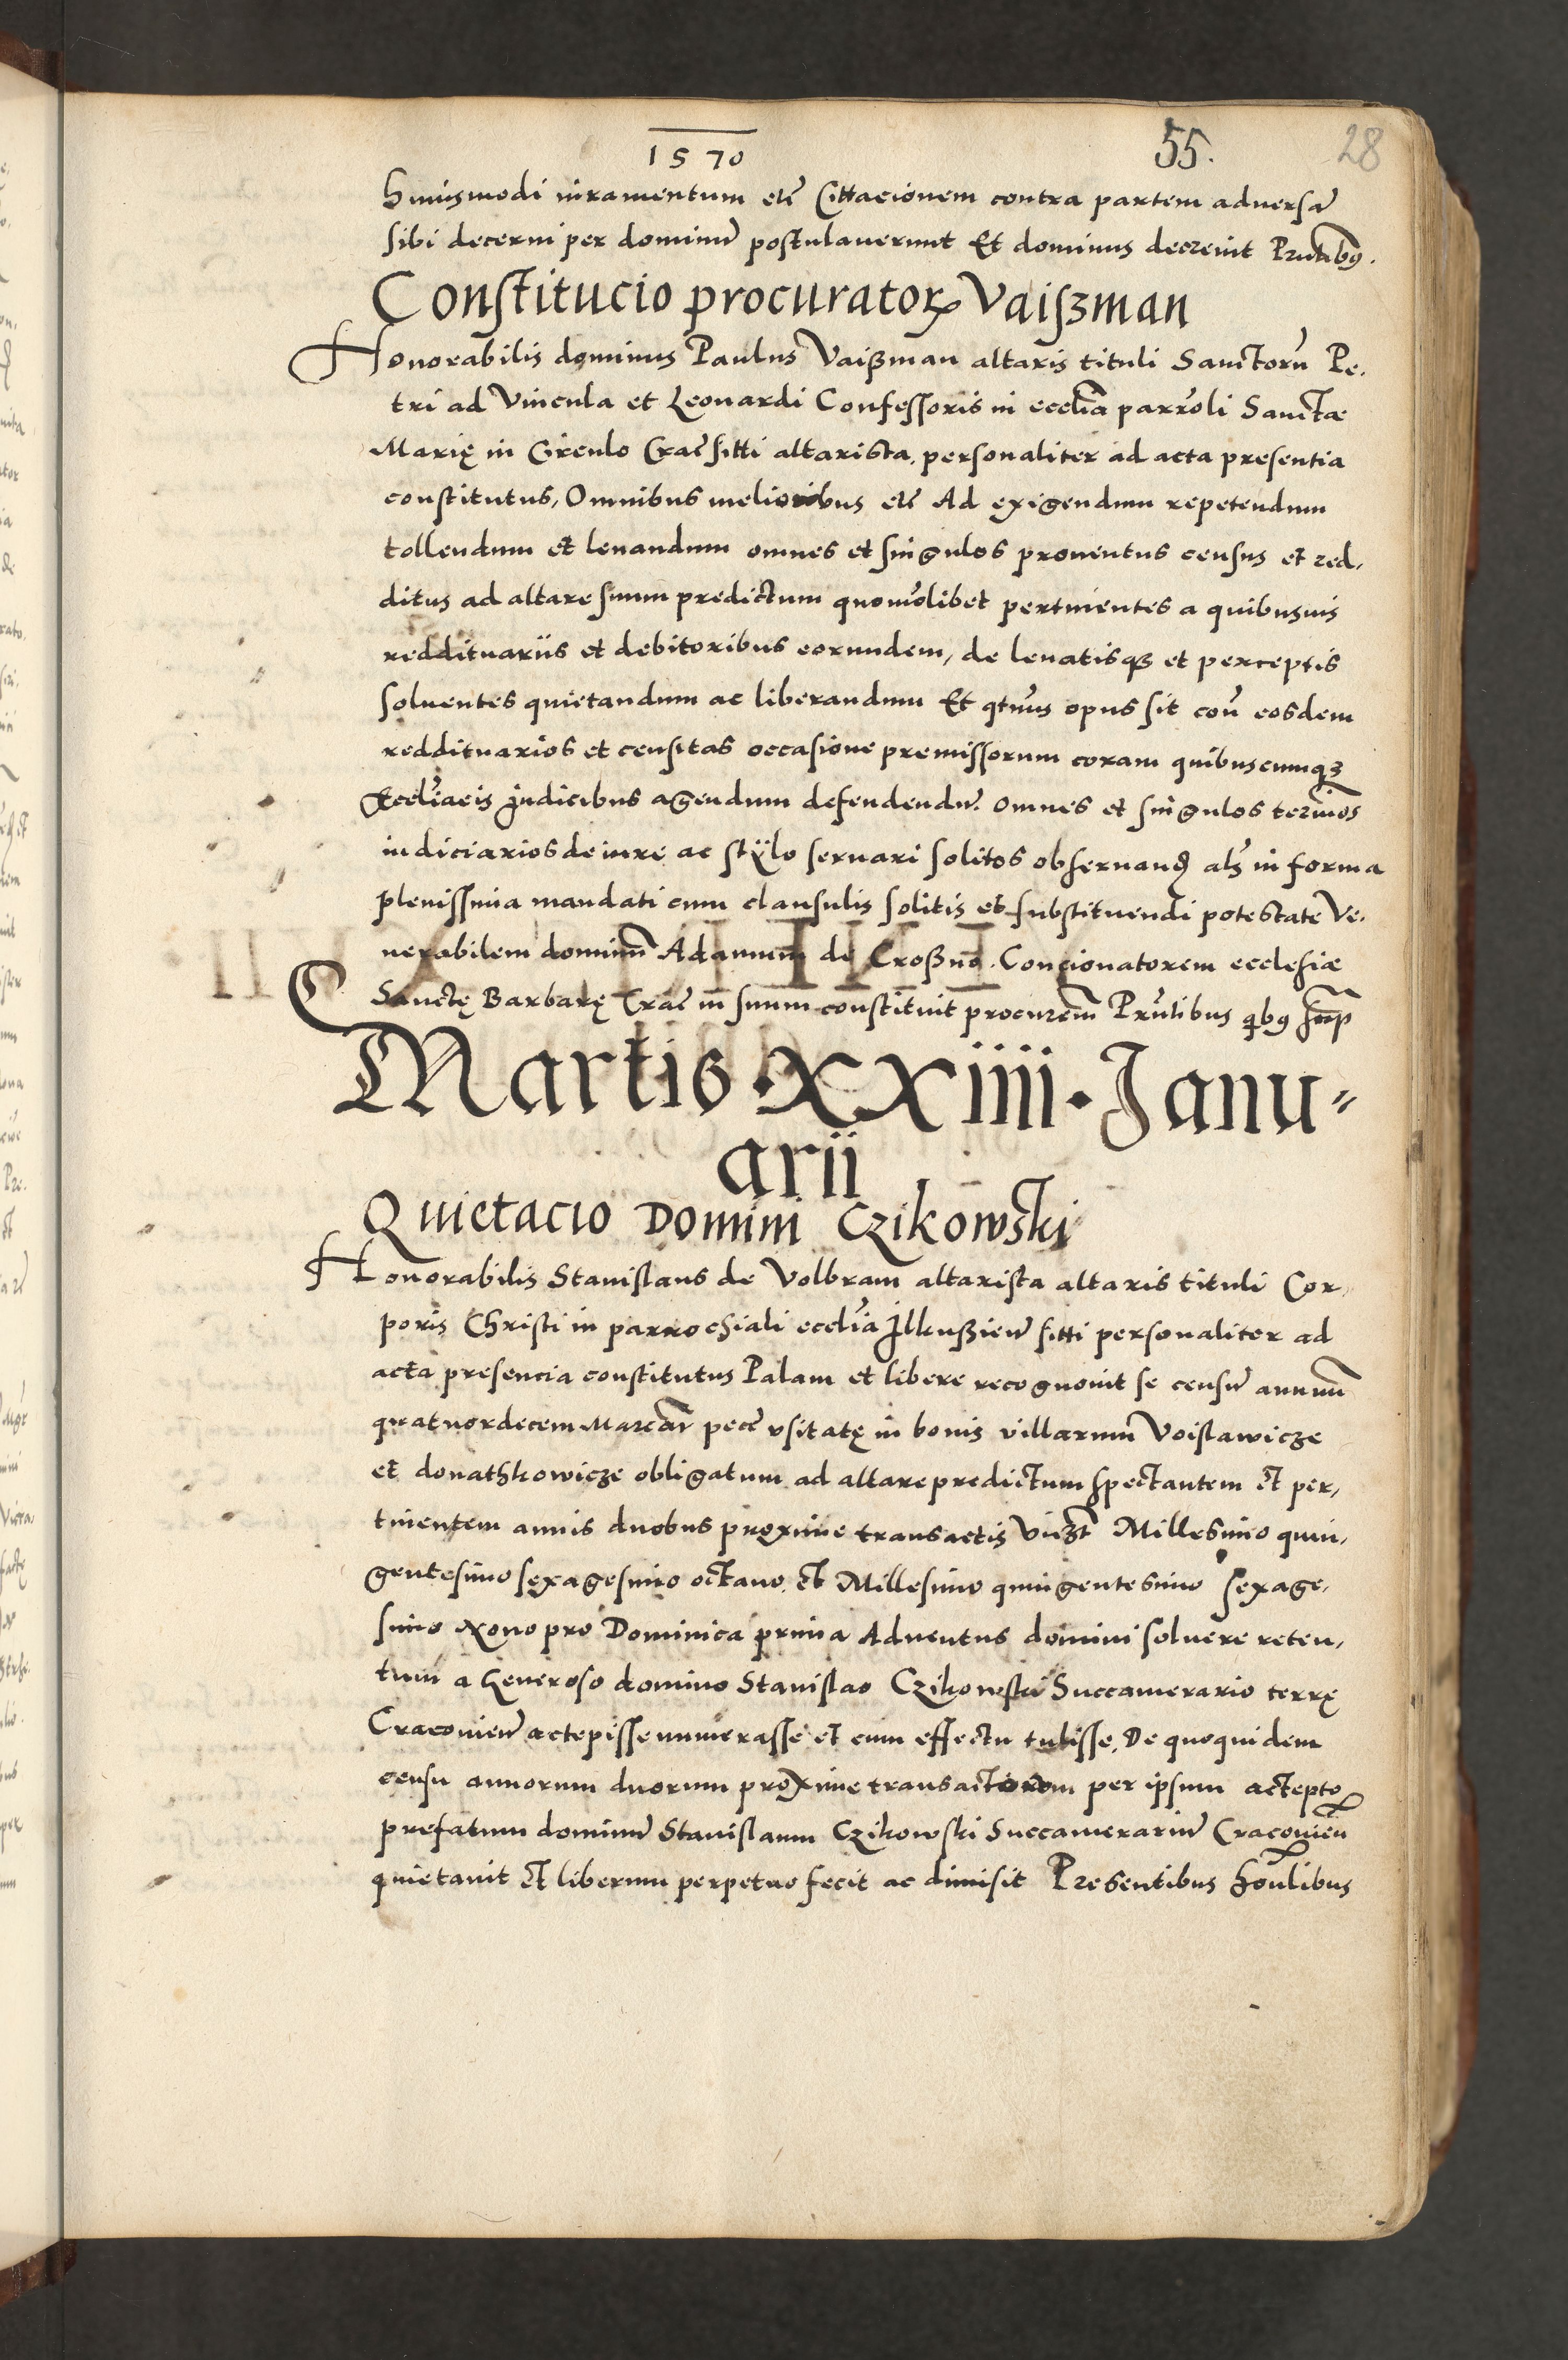 1570
55.
28
huiusmodi iuramentum etc̄ Cittacionem contra partem aduersā
sibi decerni per dominū postulauerunt Et dominus decreuit Pn̄tibꝰ.
Constitucio procuratorꝝ Vaiszman
Honorabilis dominus Paulus Vaißman altaris tituli Sanctorū Pe-
tri ad Vincula et Leonardi Confessoris in eccliā parro̅li Sanctæ
Marię in Circulo Crac̄ sitti altarista, personaliter ad acta presentia
constitutus, Omnibus melioribus etc̄ Ad exigendum repetendum
tollendum et leuandum omnes et singulos prouentus census et red-
ditus ad altare suum predictum quomōlibet pertinentes a quibusuis
reddituariis et debitoribus eorundem, de leuatisqꝫ et perceptis
soluentes quietandum ac liberandum Et qtn̄us opus sit con̄ eosdem
reddituarios et censitas occasione premissorum coram quibuscunqꝫ
Eccliācis Judicibus agendum defendendū. omnes et singulos term̄os
iudiciarios de iure ac stÿlo seruari solitos obseruanꝺ als̄ in forma
plenissima mandati cum clausulis solitis et substituendi potestate Ve-
nerabilem dominū Adamum de Croßno. Concionatorem ecclesiæ
Sanctę Barbarę Crac̄ in suum constituit procurem̄ Prn̄tibus qͥbꝰ sup̄
Martis · XXIIII · Janu-
arii
Quietacio Domini Czikowski
Honorabilis Stanislaus de Volbram altarista altaris tituli Cor-
poris Christi in parrochiali eccliā Jlkußien̄ sitti personaliter ad
acta presencia constitutus Palam et libere recognouit se censū annuū
quatuordecem Marcar̄ pecc̄ vsitatę in bonis villarum Voislawicze
et donathkowicze obligatum ad altare predictum spectantem et per-
tinentem annis duobus proxime transactis Viꝫt Millesimo quin-
gentesimo sexagesimo octauo, et Millesimo quingentesimo sexage-
simo Nono pro Dominica prima Aduentus domini soluere reten-
tum a Generoso domino Stanislao Czikowski Succamerario terrę
Cracouien̄ accepisse numerasse et cum effectu tulisse, De quoquidem
censu annorum duorum proxime transactorom per ipsum accepto
prefatum dominū Stanislaum Czikowski Succamerariū Cracouien̄
quietauit et liberum perpetuo fecit ac dimisit Presentibus